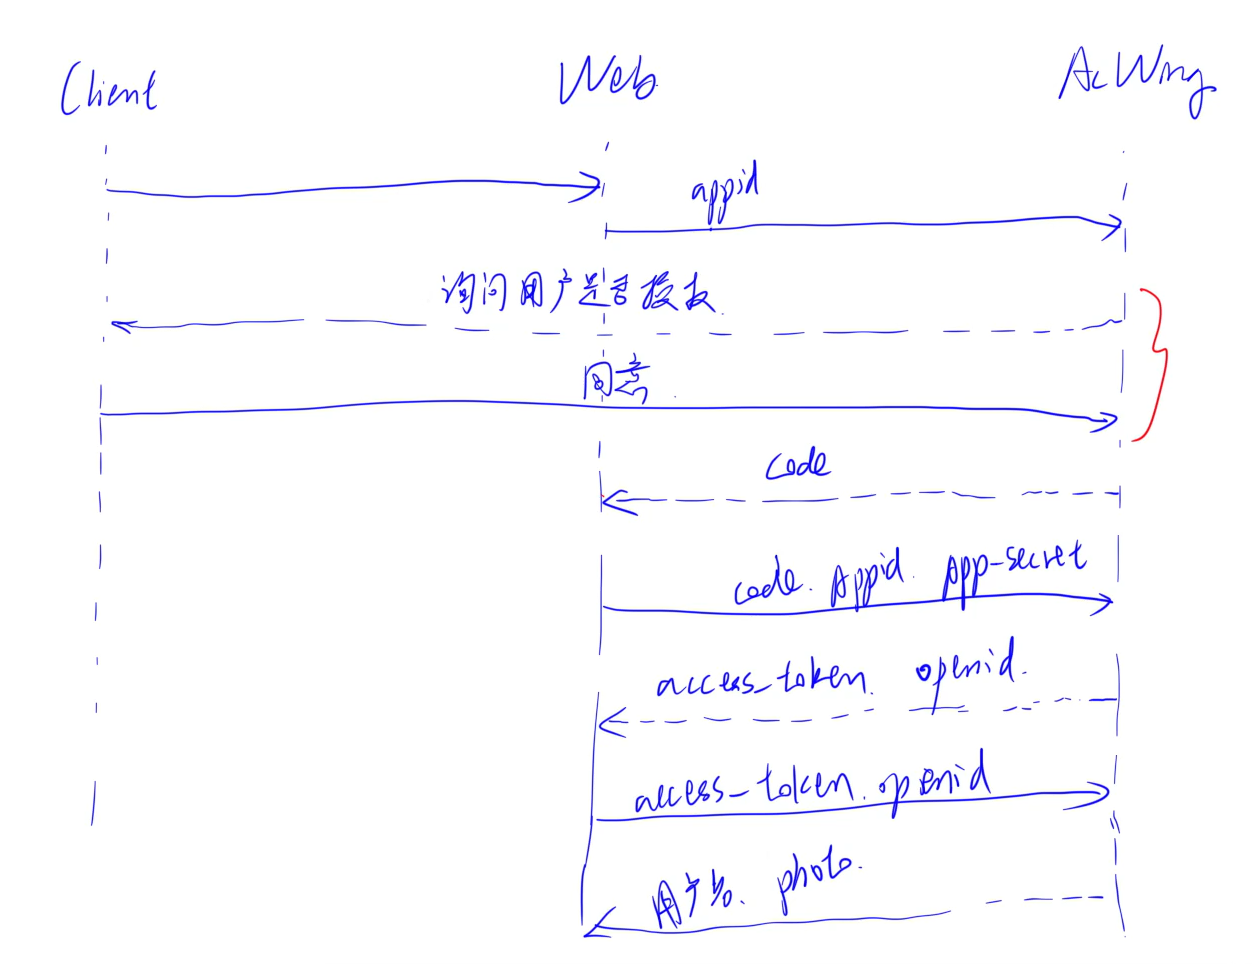 Client Web AcWing
appid
询问用户是否授权
同意
code
code. Appid. App-secret
access_token. openid.
access_token. openid
用户名、photo.